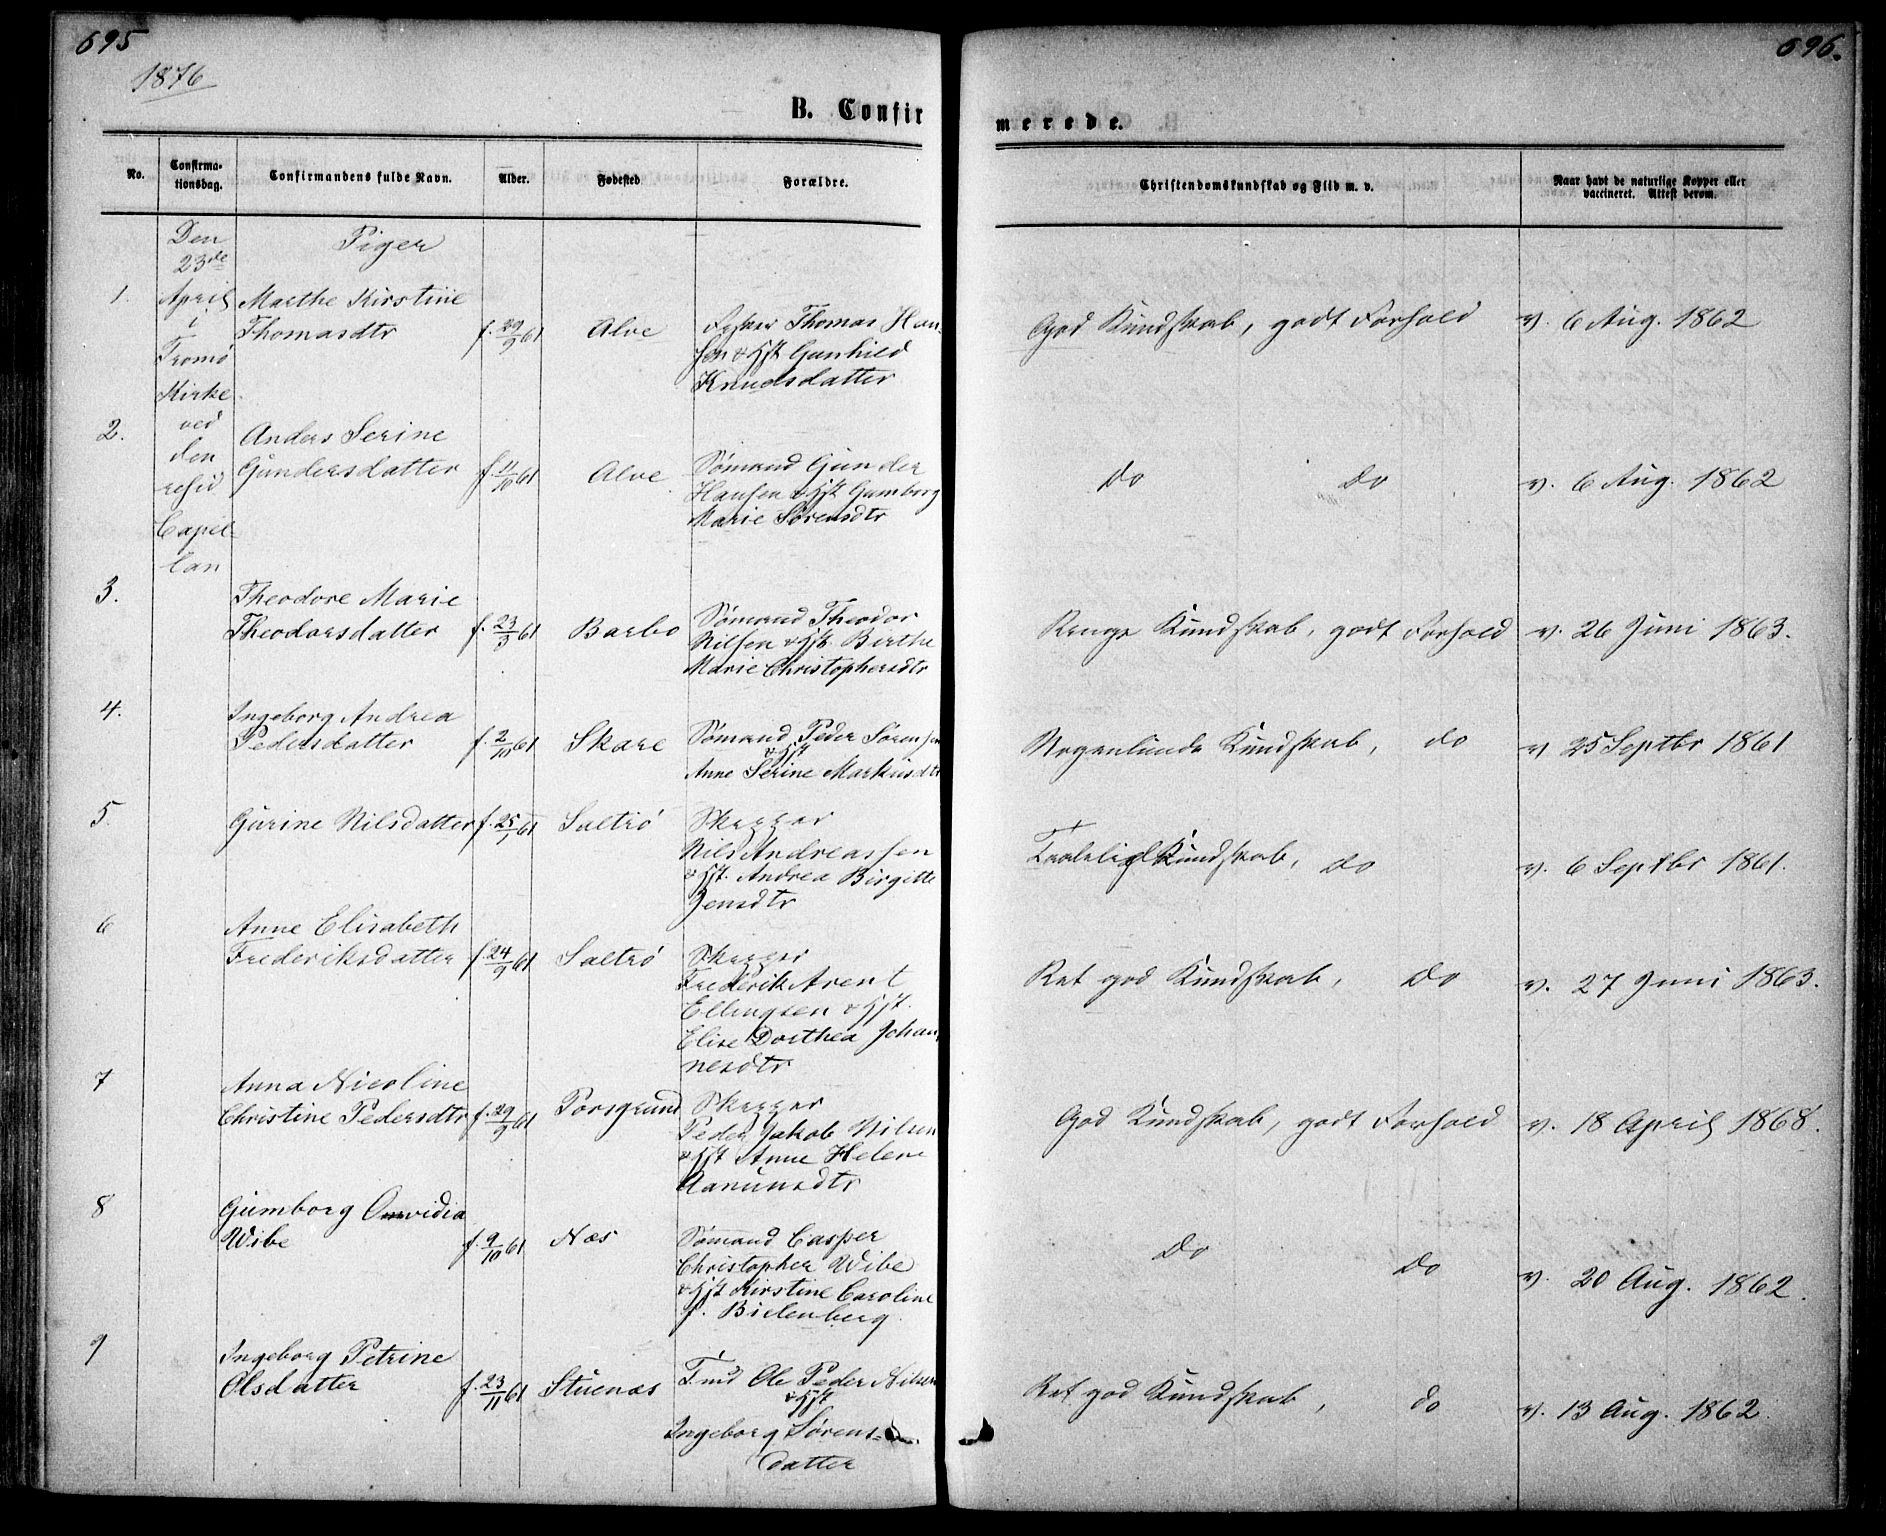 695
696.
1876
B. Confir
merede.
No.
Confirma-
tionsdag.
Confirmandens fulde Navn.
Alder.
Fødested
Forældre.
Christendomskundskab og Flid m. v.
Naar havt de naturlige Kopper eller
vaccineret. Attest derom.
Den
23de
April
i
Tromø
Kirke
ved
den
resid
Capel-
lan
Piger
1.
Marthe Kirstine
Thomasdtr
f. 29/9 61
Alve
Thomas Han-
sen & Hst Gunhild
Knudsdatter
God Kundskab, godt Forhold
v. 6 Aug. 1862
2.
Anders Serine
Gundersdatter
f. 11/10 61
Alve
Sømand Gunder
Hansen & Hst Gumborg
Marie Sørensdtr
do do
v. 6 Aug. 1862
3.
Theodore Marie
Theodorsdatter
f. 23/3 61
Barbo
Sømand Theodor
Nilsen & Hst. Berthe
Marie Christophersdtr
Kundskab, godt Forhold
v. 26 Juni 1863.
4.
Ingeborg Andrea
Pedersdatter
f. 2/10 61
Skare
Sømand Peder Sørensen
& Hst
Anne Serine Markusdtr
Nogenlunde Kundskab, do
v 25 Septbr 1861
5.
Gurine Nilsdatter
f. 25/1 61
Saltrø
Skipper
Nils Andreassen
& Hst. Andrea Birgitte
Jensdtr
Taalelig Kundskab, do
v. 6 Septbr 1861.
6
Anne Elisabeth
Frederiksdatter
f. 24/9 61
Saltrø
Skipper
Frederik Arent
Ellingsen & Hst.
Elise Dorthea Johan-
nesdtr
Ret god Kundskab, do
v. 27 Juni 1863.
7
Anna Nicoline
Christine Pedersdtr
f. 29/9 61
Porsgrund
Skipper
Peder Jakob Nilsen
& Hst Anne Helene
Aanunsdtr
God Kundskab, godt Forhold
v. 18 April 1868.
8
Gumborg Omvidia
Wibe
f. 9/10 61
Næs
Sømand Casper
Christopher Wibe
& Hst Kirstine Caroline
f. Bielenberg
do do
v. 20 Aug. 1862.
9
Ingeborg Petrine
Olsdatter
f. 23/11 61
Stuenæs
Ole Peder Nilsen
& Hst
Ingeborg Sørens-
datter
Ret god Kundskab, do
v. 13 Aug. 1862.